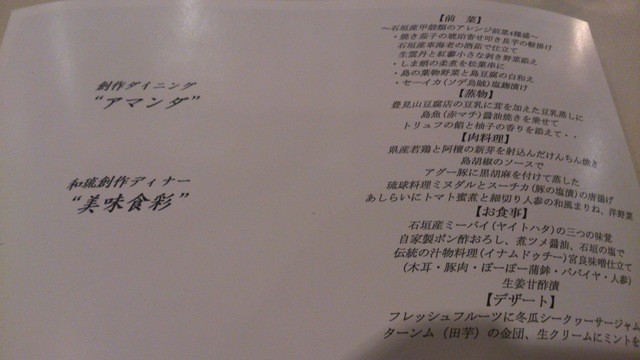 創作ダイニング
“アマンダ”
和琉創作ディナー
“美味食彩”
【前 菜】
～石垣産甲殻類のアレンジ前菜4種盛～
・焼き茄子の琥珀寄せ叩き長芋の餡掛け
石垣産車海老の酒茹で仕立て
生雲丹と紅蓼小さな刺き野菜添え
・しま蛸の柔煮を松葉串に
・島の葉物野菜と島豆腐の白和え
・セーイカ(ソデ烏賊)塩麹漬け
【蒸物】
豊見山豆腐店の豆乳に茸を加えた豆乳蒸しに
島魚(赤マチ)醤油焼きを乗せて
トリュフの餡と柚子の香りを添えて・・
【肉料理】
県産若鶏と阿檀の新芽を射込んだけんちん焼き
島胡椒のソースで
アグー豚に黒胡麻を付けて蒸した
琉球料理ミヌダルとスーチカ(豚の塩漬)の唐揚げ
あしらいにトマト蜜煮と細切り人参の和風まりね、洋野菜
【お食事】
石垣産ミーバイ(ヤイトハタ)の三つの味覚
自家製ポン酢おろし、煮ツメ醤油、石垣の塩で
伝統の汁物料理(イナムドゥチー)宮良味噌仕立て
(木耳・豚肉・ぼーぼー蒲鉾・パパイヤ・人参)
生姜甘酢漬
【デザート】
フレッシュフルーツに冬瓜シークヮーサージャム
ターンム(田芋)の金団、生クリームにミントを